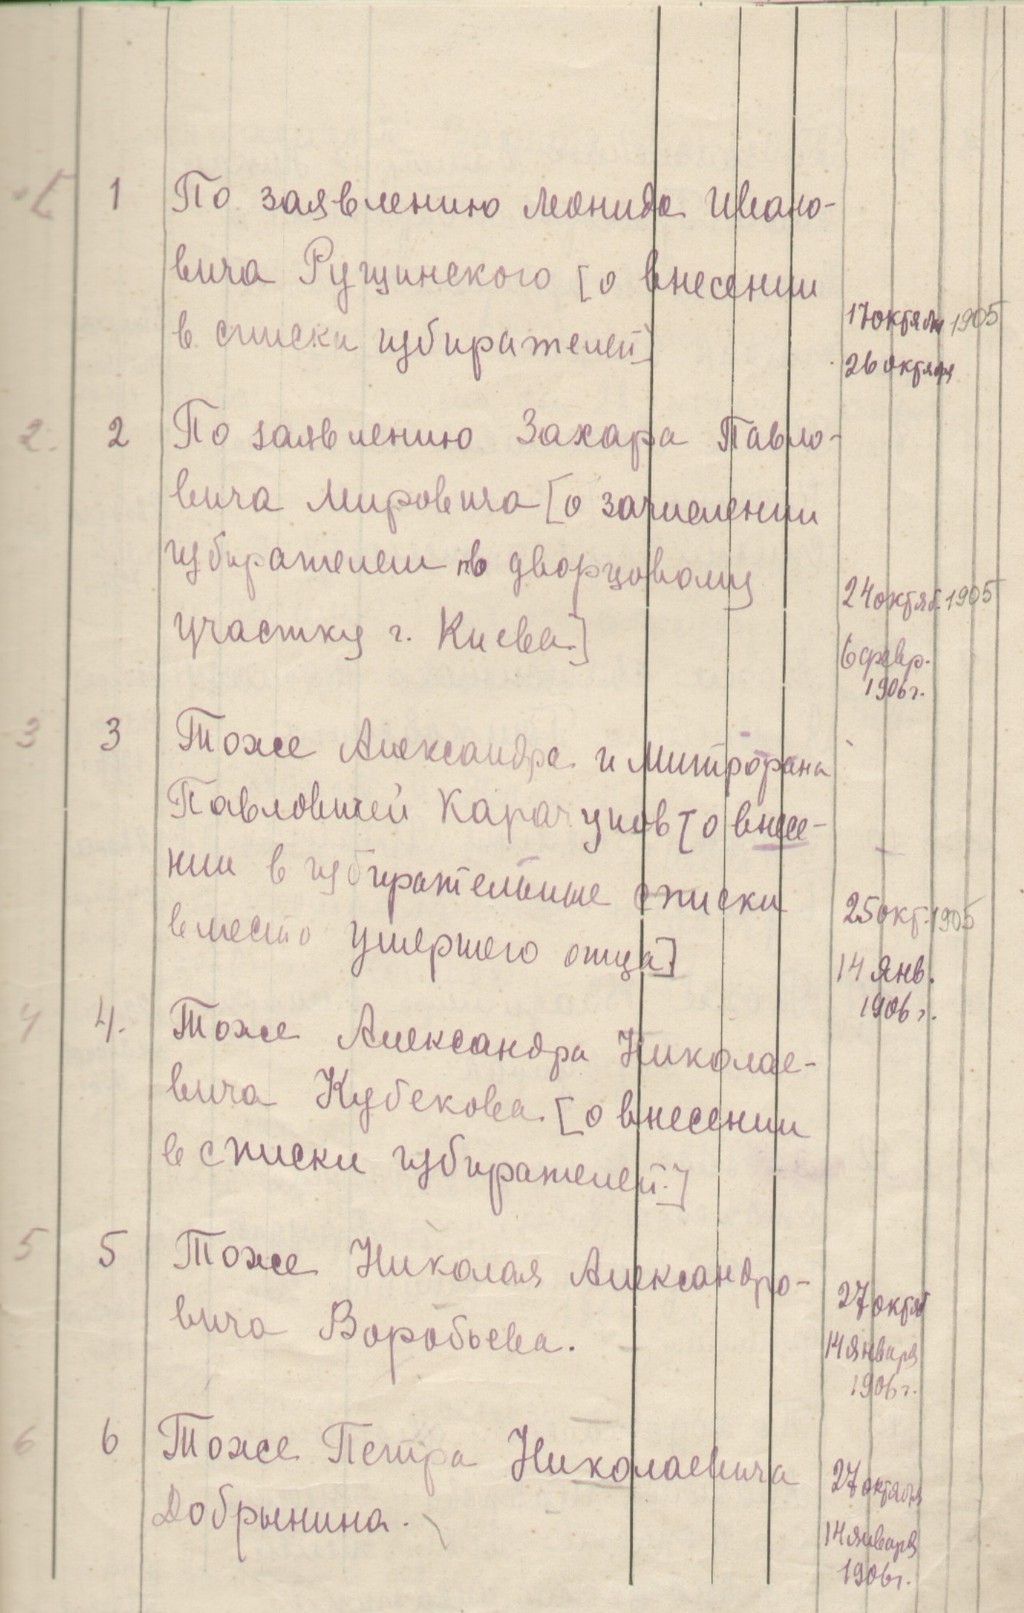 1 1 По заявлению Леонида Ивано-
вича Рущинского [о внесении
в списки избирателей]
17 октября 1905
26 октября
2. 2 По заявлению Захара Павло-
вича Мировича [о зачислении
избирателем по дворцовому
участку г. Киева.]
24 октяб. 1905
6 февр.
1906 г.
3 3 Тоже Александра и Митрофана
Павловичей Карачунов [о внесе-
нии в избирательные списки
вместо умершего отца]
25 окт. 1905
14 янв.
1906 г.
4 4. Тоже Александра Николае-
вича Кубекова. [о внесении
в списки избирателей.]
5 5 Тоже Николая Александро-
вича Воробьева.
27 октяб
14 января
1906 г.
6 6 Тоже Петра Николаевича
Добрынина.
27 октября
14 января
1906 г.